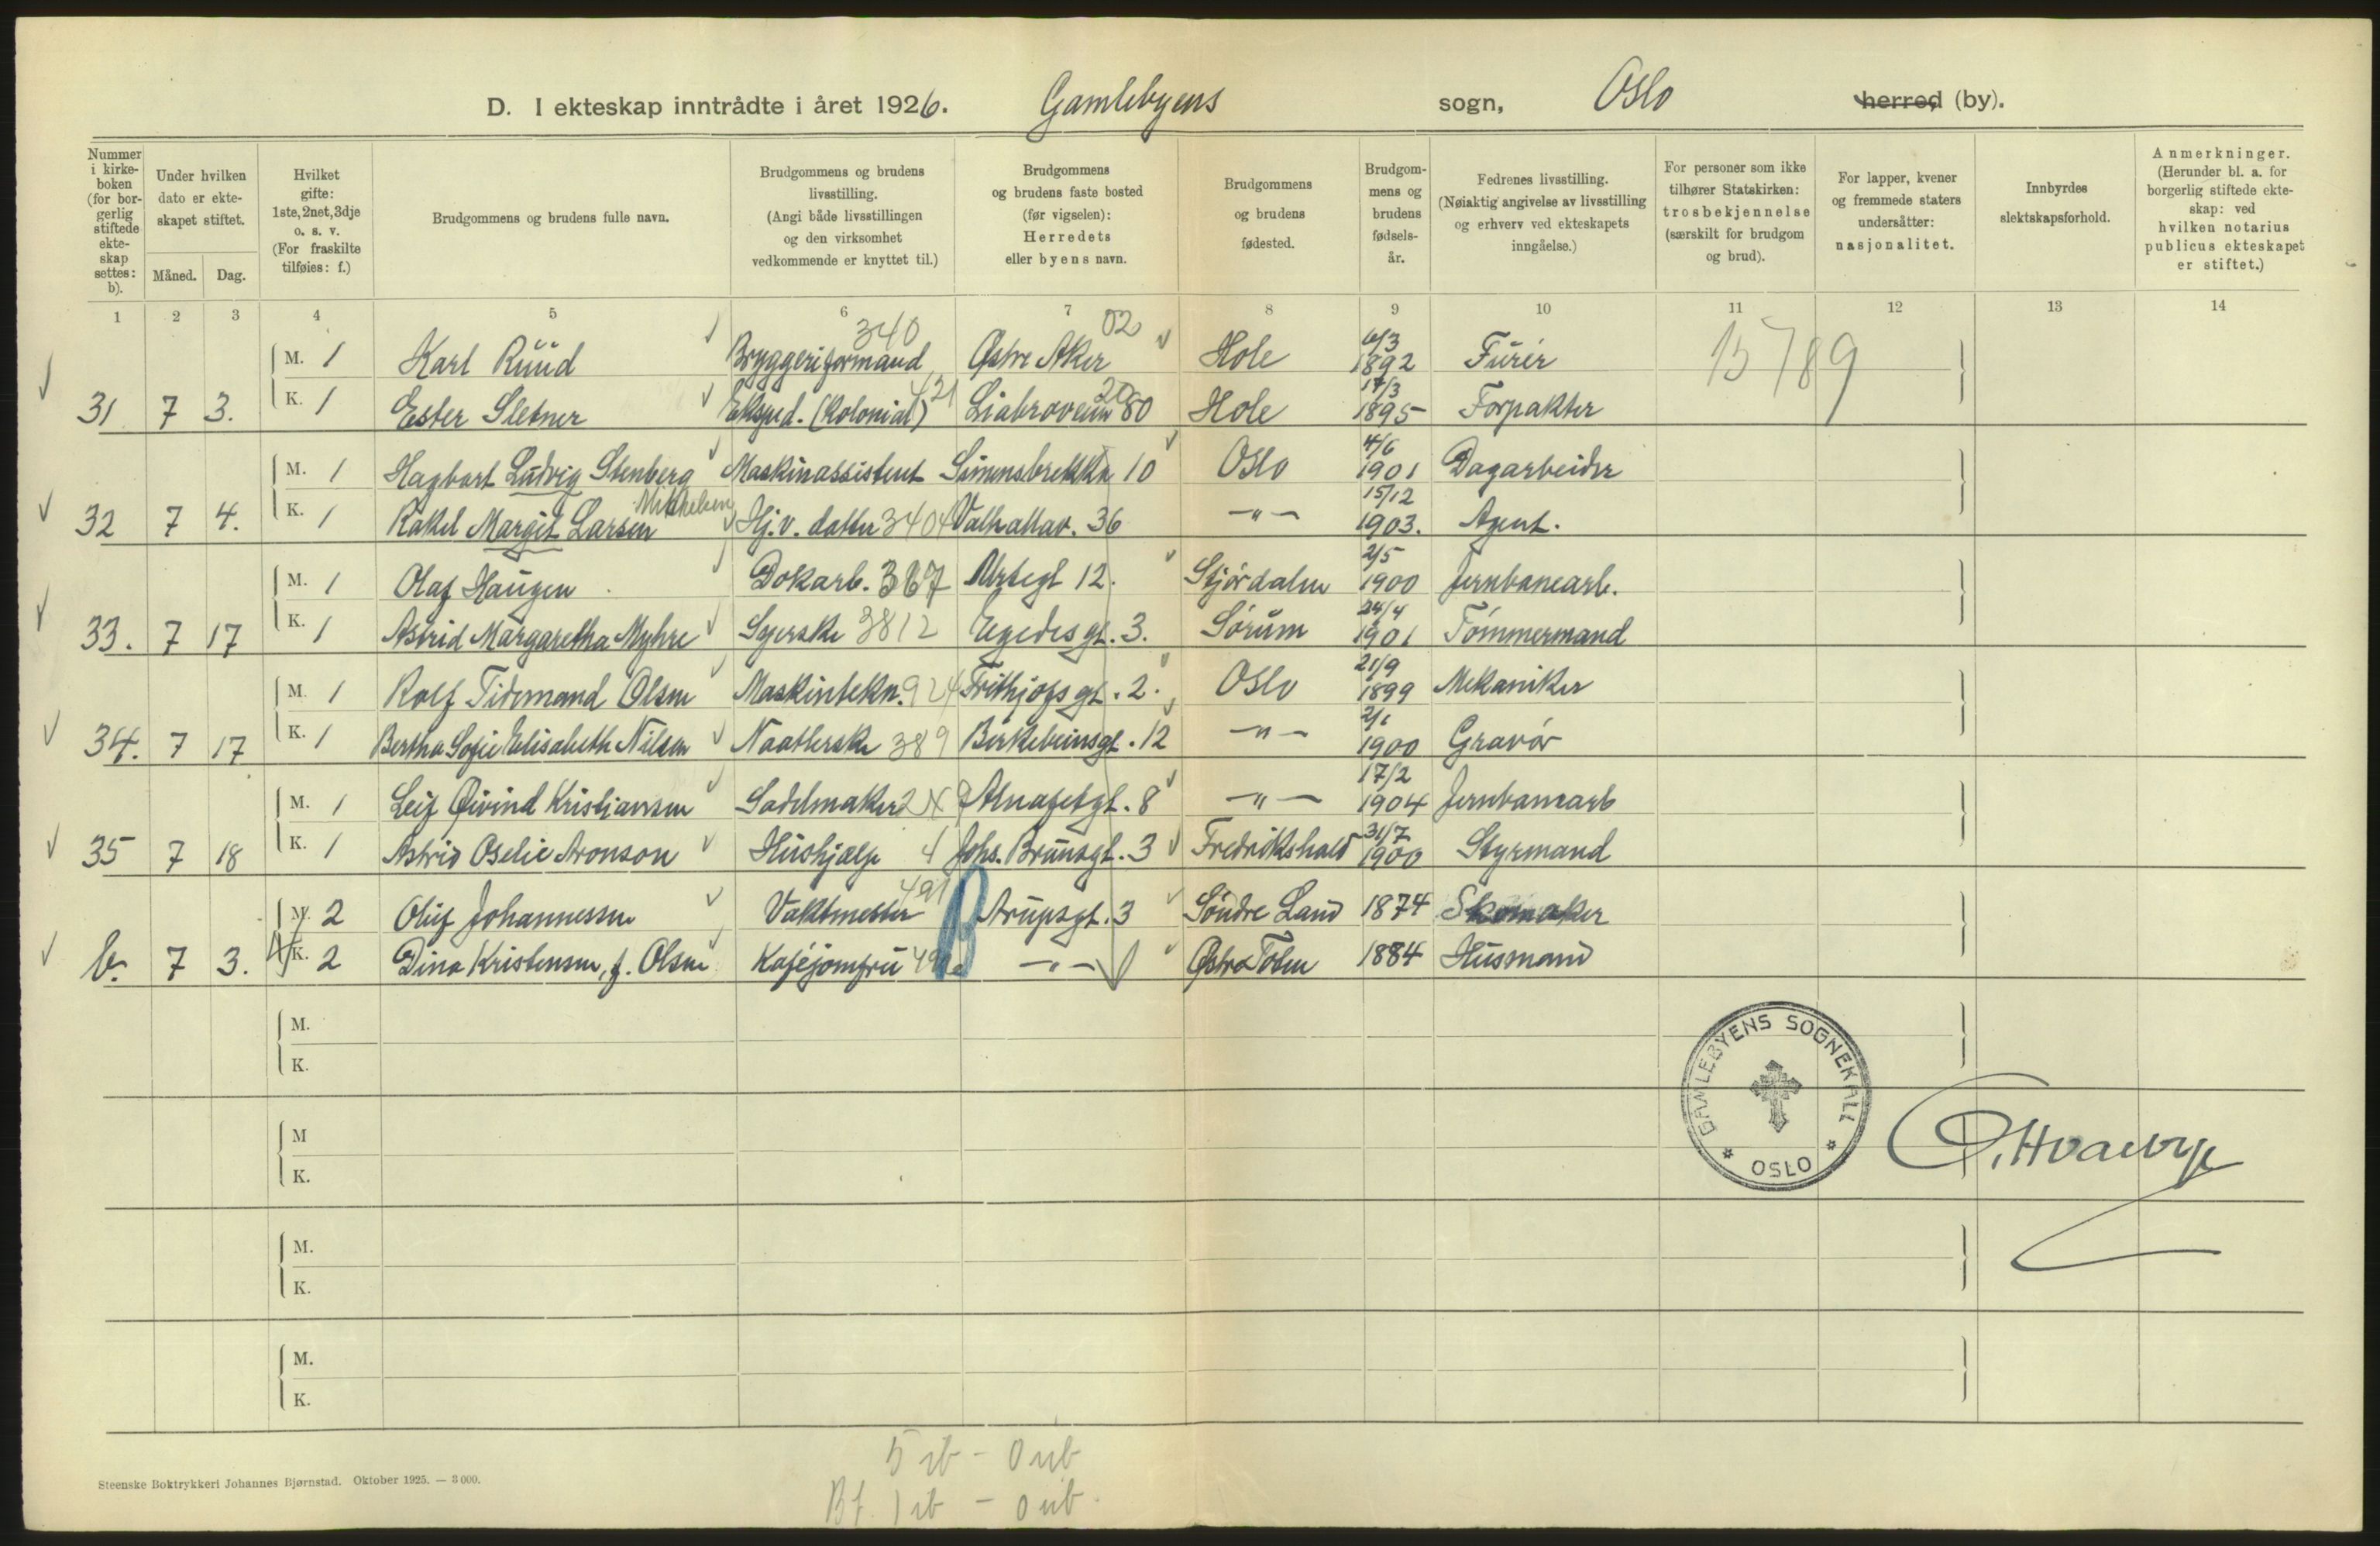 D. I ekteskap inntrådte i året 1926. Gamlebyens sogn, Oslo herred (by).
Nummer i kirkeboken (for borgerlig stiftede ekteskap settes: b).
Under hvilken dato er ekteskapet stiftet.
Måned. Dag.
Hvilket gifte: 1ste, 2net, 3dje o. s. v. (For fraskilte tilføies: f.)
Brudgommens og brudens fulle navn.
Brudgommens og brudens livsstilling. (Angi både livsstillingen og den virksomhet vedkommende er knyttet til.)
Brudgommens og brudens faste bosted (før vigselen): Herredets eller byens navn.
Brudgommens og brudens fødested.
Brudgommens og brudens fødselsår.
Fedrenes livsstilling. (Nøiaktig angivelse av livsstilling og erhverv ved ekteskapets inngåelse.)
For personer som ikke tilhører Statskirken: trosbekjennelse (særskilt for brudgom og brud).
For lapper, kvener og fremmede staters undersåtter: nasjonalitet.
Innbyrdes slektskapsforhold.
Anmerkninger. (Herunder bl. a. for borgerlig stiftede ekteskap: ved hvilken notarius publicus ekteskapet er stiftet.)
1 2 3 4 5 6 7 8 9 10 11 12 13 14
340 02 6/3
M. 1 Karl Ruud Bryggeriformand Østre Aker Hole 1892 Furér 15789
421 20 17/3
31 7 3. K. 1 Ester Sletner Eksped. (Kolonial) Liabroveien 80 Hole 1895 Forpakter
4/6
M. 1 Hagbart Ludvig Stenberg Maskinassistent Simensbrekka 10 Oslo 1901 Dagarbeider
Mikkelsen 15/12
32 7 4. K. 1 Rakel Margit Larsen Hj. v. datter 3404 Valhallav. 36 —"— 1903. Agent.
2/5
M. 1 Olaf Haugen Dokarb. 367 Urtegt 12. Stjørdalen 1900 Jernbanearb.
24/4
33. 7 17 K. 1 Astrid Margaretha Myhre Syerske 3812 Egedesgt. 3. Sørum 1901 Tømmermand
21/9
M. 1 Rolf Tidemand Olsen Maskintekn. 924 Frithjofsgt. 2. Oslo 1899 Mekaniker
2/1
34. 7 17 K. 1 Bertha Sofie Elisabeth Nilsen Naatlerske 389 Birkebeinsgt. 12 —"— 1900 Gravør
17/2
M. 1 Leif Øivind Kristiansen Sadelmaker Alnafetgt. 8 —"— 1904 Jernbanearb
31/7
35 7 18 K. 1 Astrid Oselie Aronson Hushjælp 4 Johs. Brunsgt. 3 Fredrikshald 1900 Styrmand
491
M. 2 Oluf Johannessen Vaktmester B Arupsgt. 3 Søndre Land 1874 Skomaker
b. 7 3. K. 2 Dina Kristensen, f. Olsen Kaféjomfru —"— Østre Toten 1884 Husmand
M.
K.
M
K.
M.
K.
M.
K.
GAMLEBYENS SOGNEKALL
* OSLO *
5 ib - 0 ub
Bf. 1 ib - 0 ub.
Steenske Boktrykkeri Johannes Bjørnstad. Oktober 1925. — 3 000.